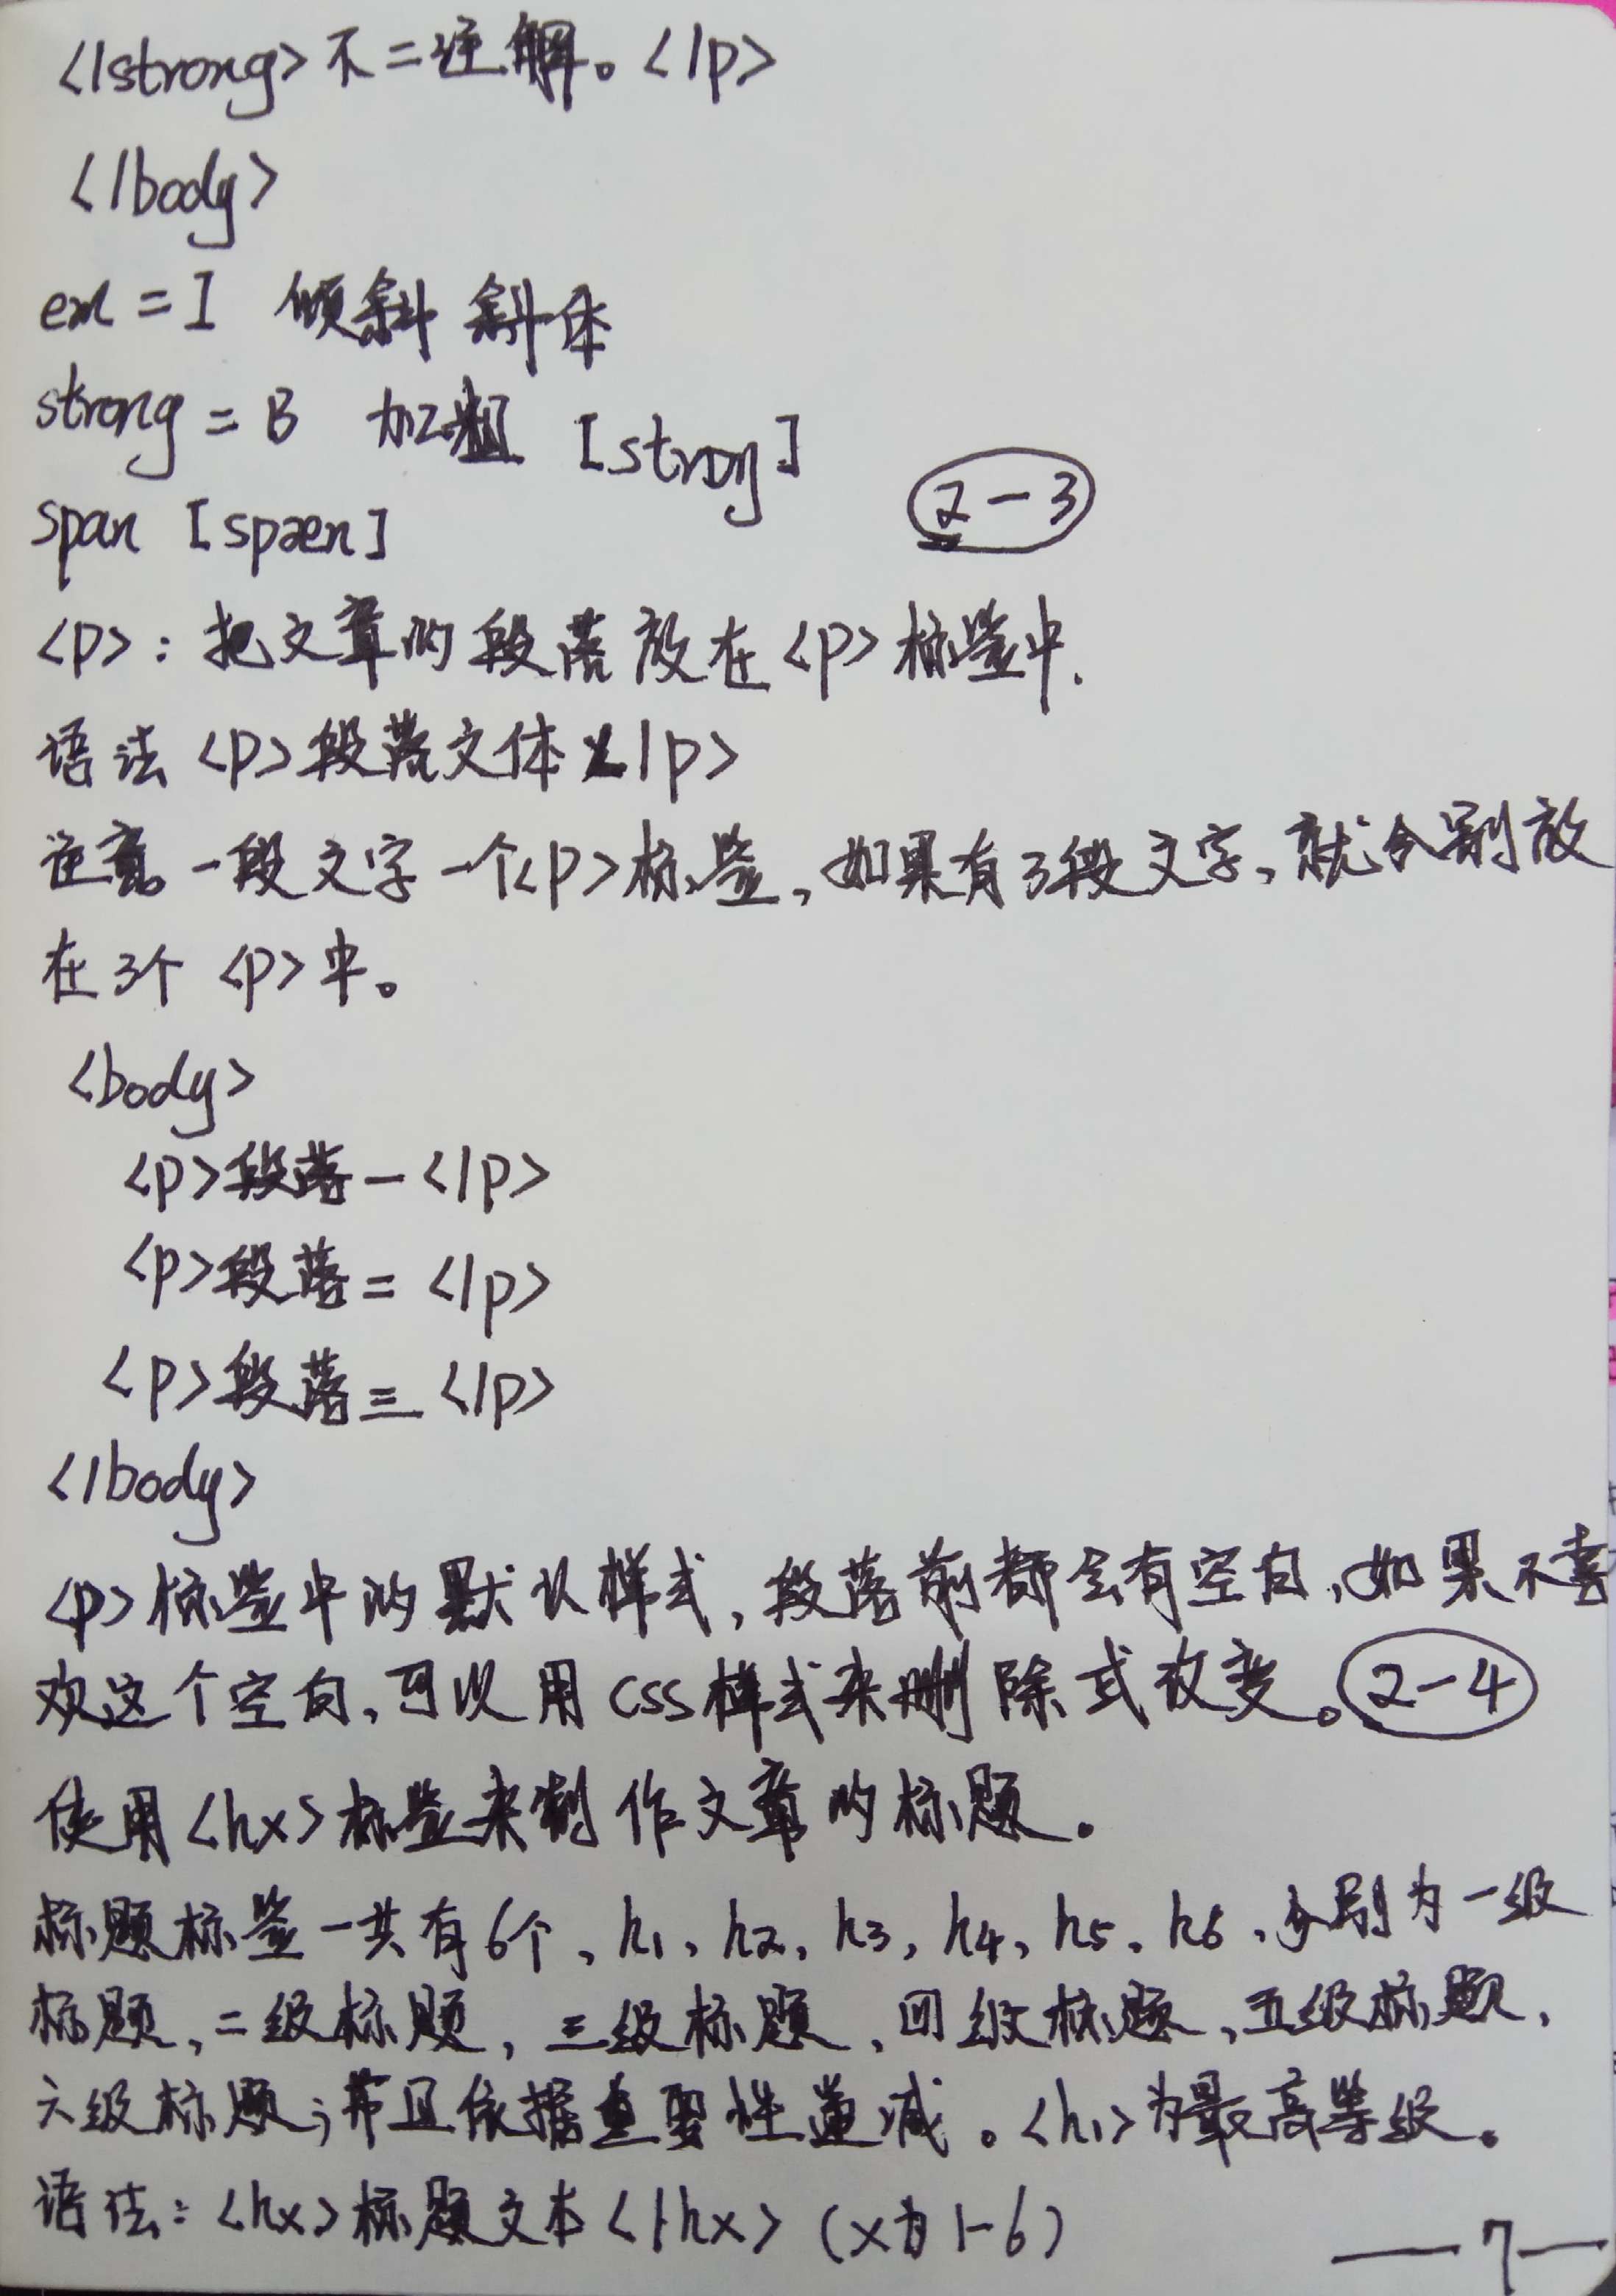 </strong>不二注解。</p>
</body>
em = I 倾斜 斜体
strong = B 加粗 [strɒŋ]
span [spæn]
2-3
<p>：把文章的段落放在<p>标签中.
语法 <p>段落文体</p>
注意 一段文字一个<p>标签,如果有3段文字,就分别放
在3个 <p>中。
<body>
<p>段落一</p>
<p>段落二</p>
<p>段落三</p>
</body>
<p>标签中的默认样式,段落前都会有空白,如果不喜
欢这个空白,可以用css样式来删除或改变。 2-4
使用<hx>标签来制作文章的标题。
标题标签一共有6个、h1、h2、h3、h4、h5、h6、分别为一级
标题,二级标题,三级标题、四级标题、五级标题、
六级标题;并且依据重要性递减。<h1>为最高等级。
语法:<hx>标题文本</hx> (x为1-6)
—7—